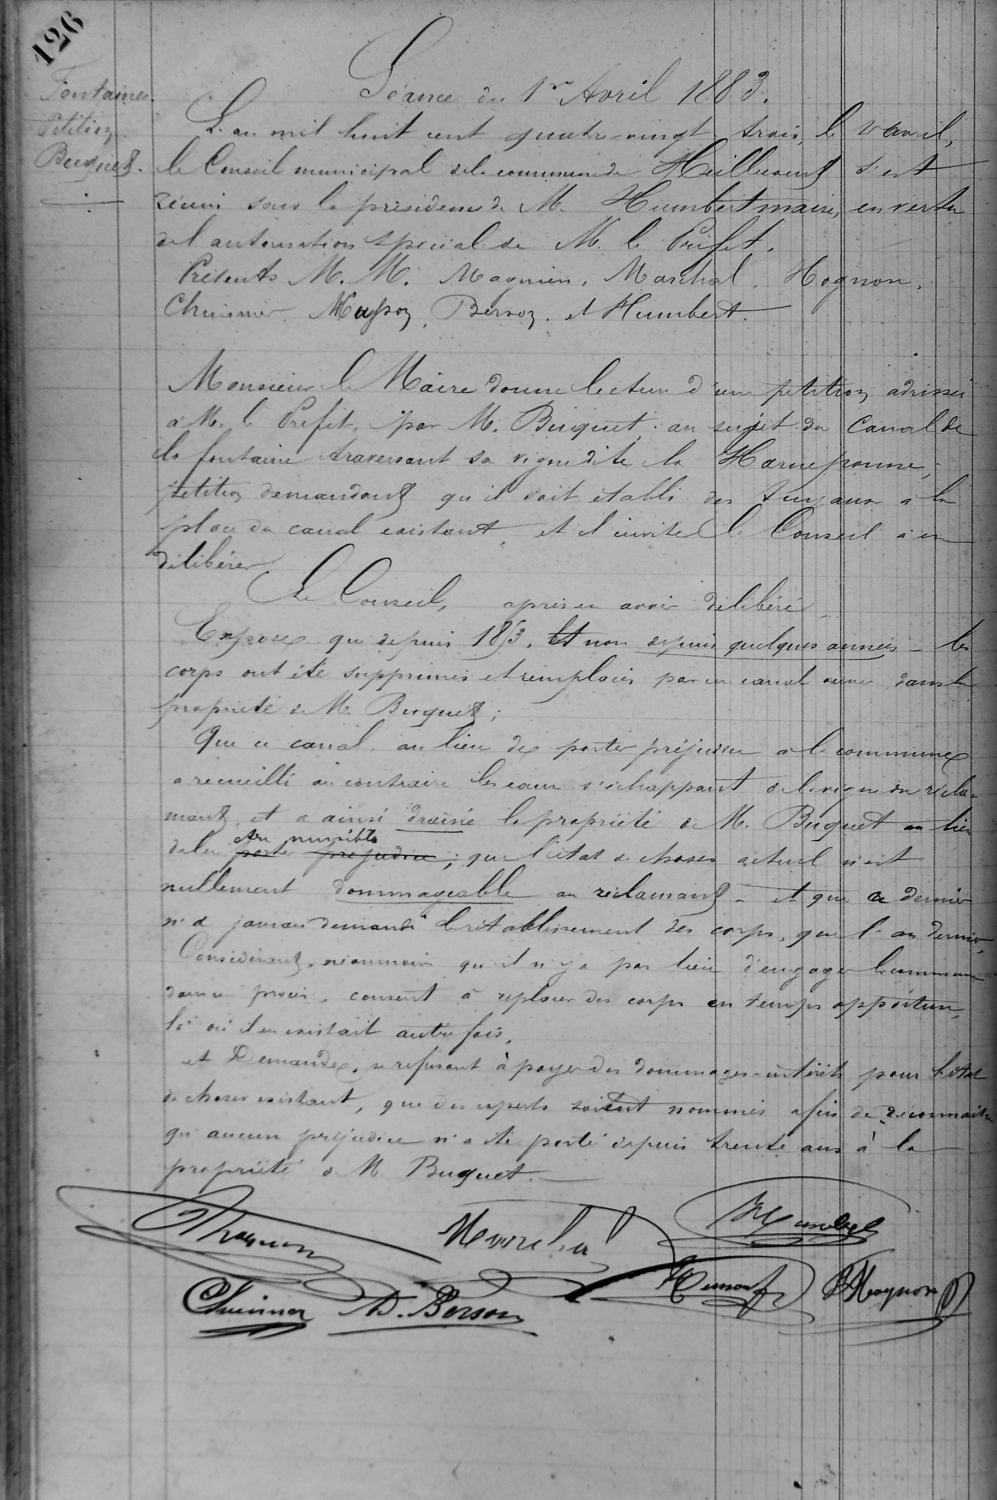 126
Fontaines.
Pétition
Buquet.
Séance du 1er Avril 1883.
L'an mil huit cent quatre-vingt trois, le 1er avril,
le Conseil municipal de la commune de s'est
réuni sous la présidence de M. Humbert maire, en vertu
de l'autorisation spécial de M. le Préfet.
Présents M. M. Magnien, Marchal, Hognon,
Chuinior, Bersoz, et Humbert.
Monsieur le Maire donne lecture d'une pétition adressé
à M. le Préfet, par M. Buquet, au sujet du Canal de
la fontaine traversant sa vigne dite la
pétition demandant qu'il soit établi des tuyaux à la
place du canal existant, et il invite le Conseil à en
délibérer
Le Conseil, après en avoir délibéré,
Expose que depuis 1853, et non depuis quelques années - les
corps ont été supprimés et remplacés par un canal dans la
propriété de M. Buquet;
Que ce canal, au lieu de porter préjudice à la commune
a recueilli au contraire les eaux s'échappant de la vigne du récla-
mant, et a ainsi drainé la propriété de M. Buquet au lieu
de lui être nuisible porter préjudice; que l'état de choses actuel n'est
nullement dommageable au réclamant - et que ce dernier
n'a jamais demandé le rétablissement des corps, que l'an dernier,
Considérant, néanmoins qu'il n'y a pas lieu d'engager la commune
dans un procès, consent à replacer des corps en temps opportun,
là où il en existait autrefois,
et Demande, se refusant à payer des dommages-intérêts pour l'état
de choses existant, que des experts soient nommés afin de reconnaître
qu'aucun préjudice n'a été porté depuis trente ans à la
propriété de M. Buquet. —
Magnien Marchal Humbert
Chuinior D. Berson Hognon